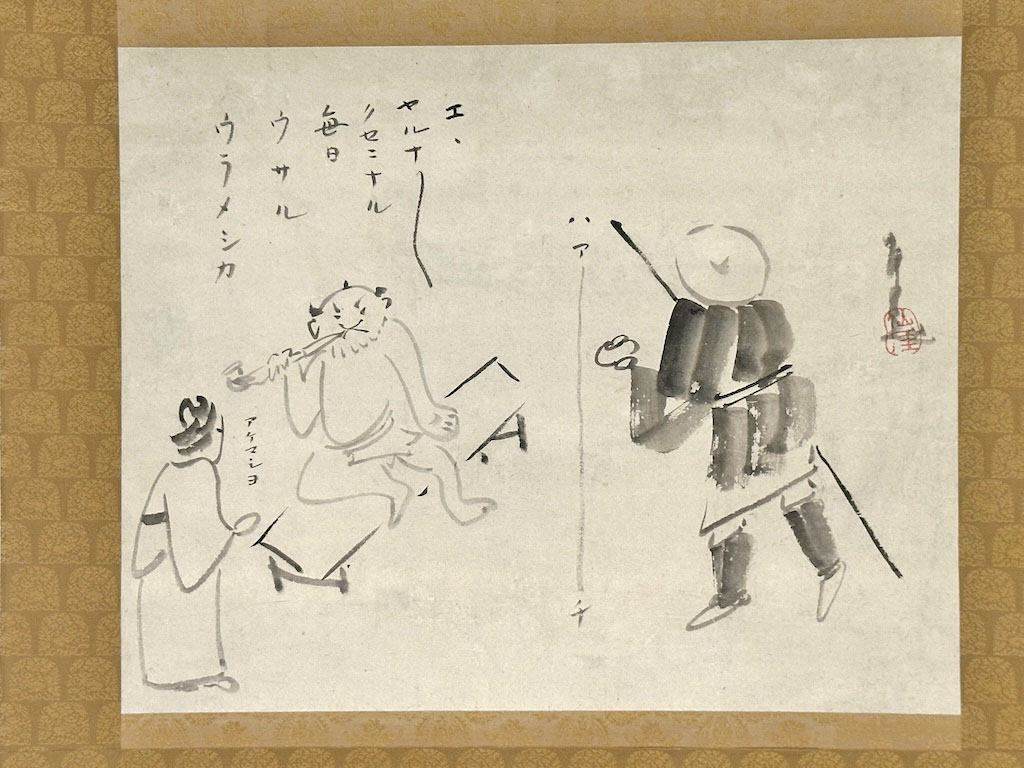 ハアーチ
エ、
ヤルナー
クセニナル
毎日
ウサル
ウラメシカ
アケマシヨ